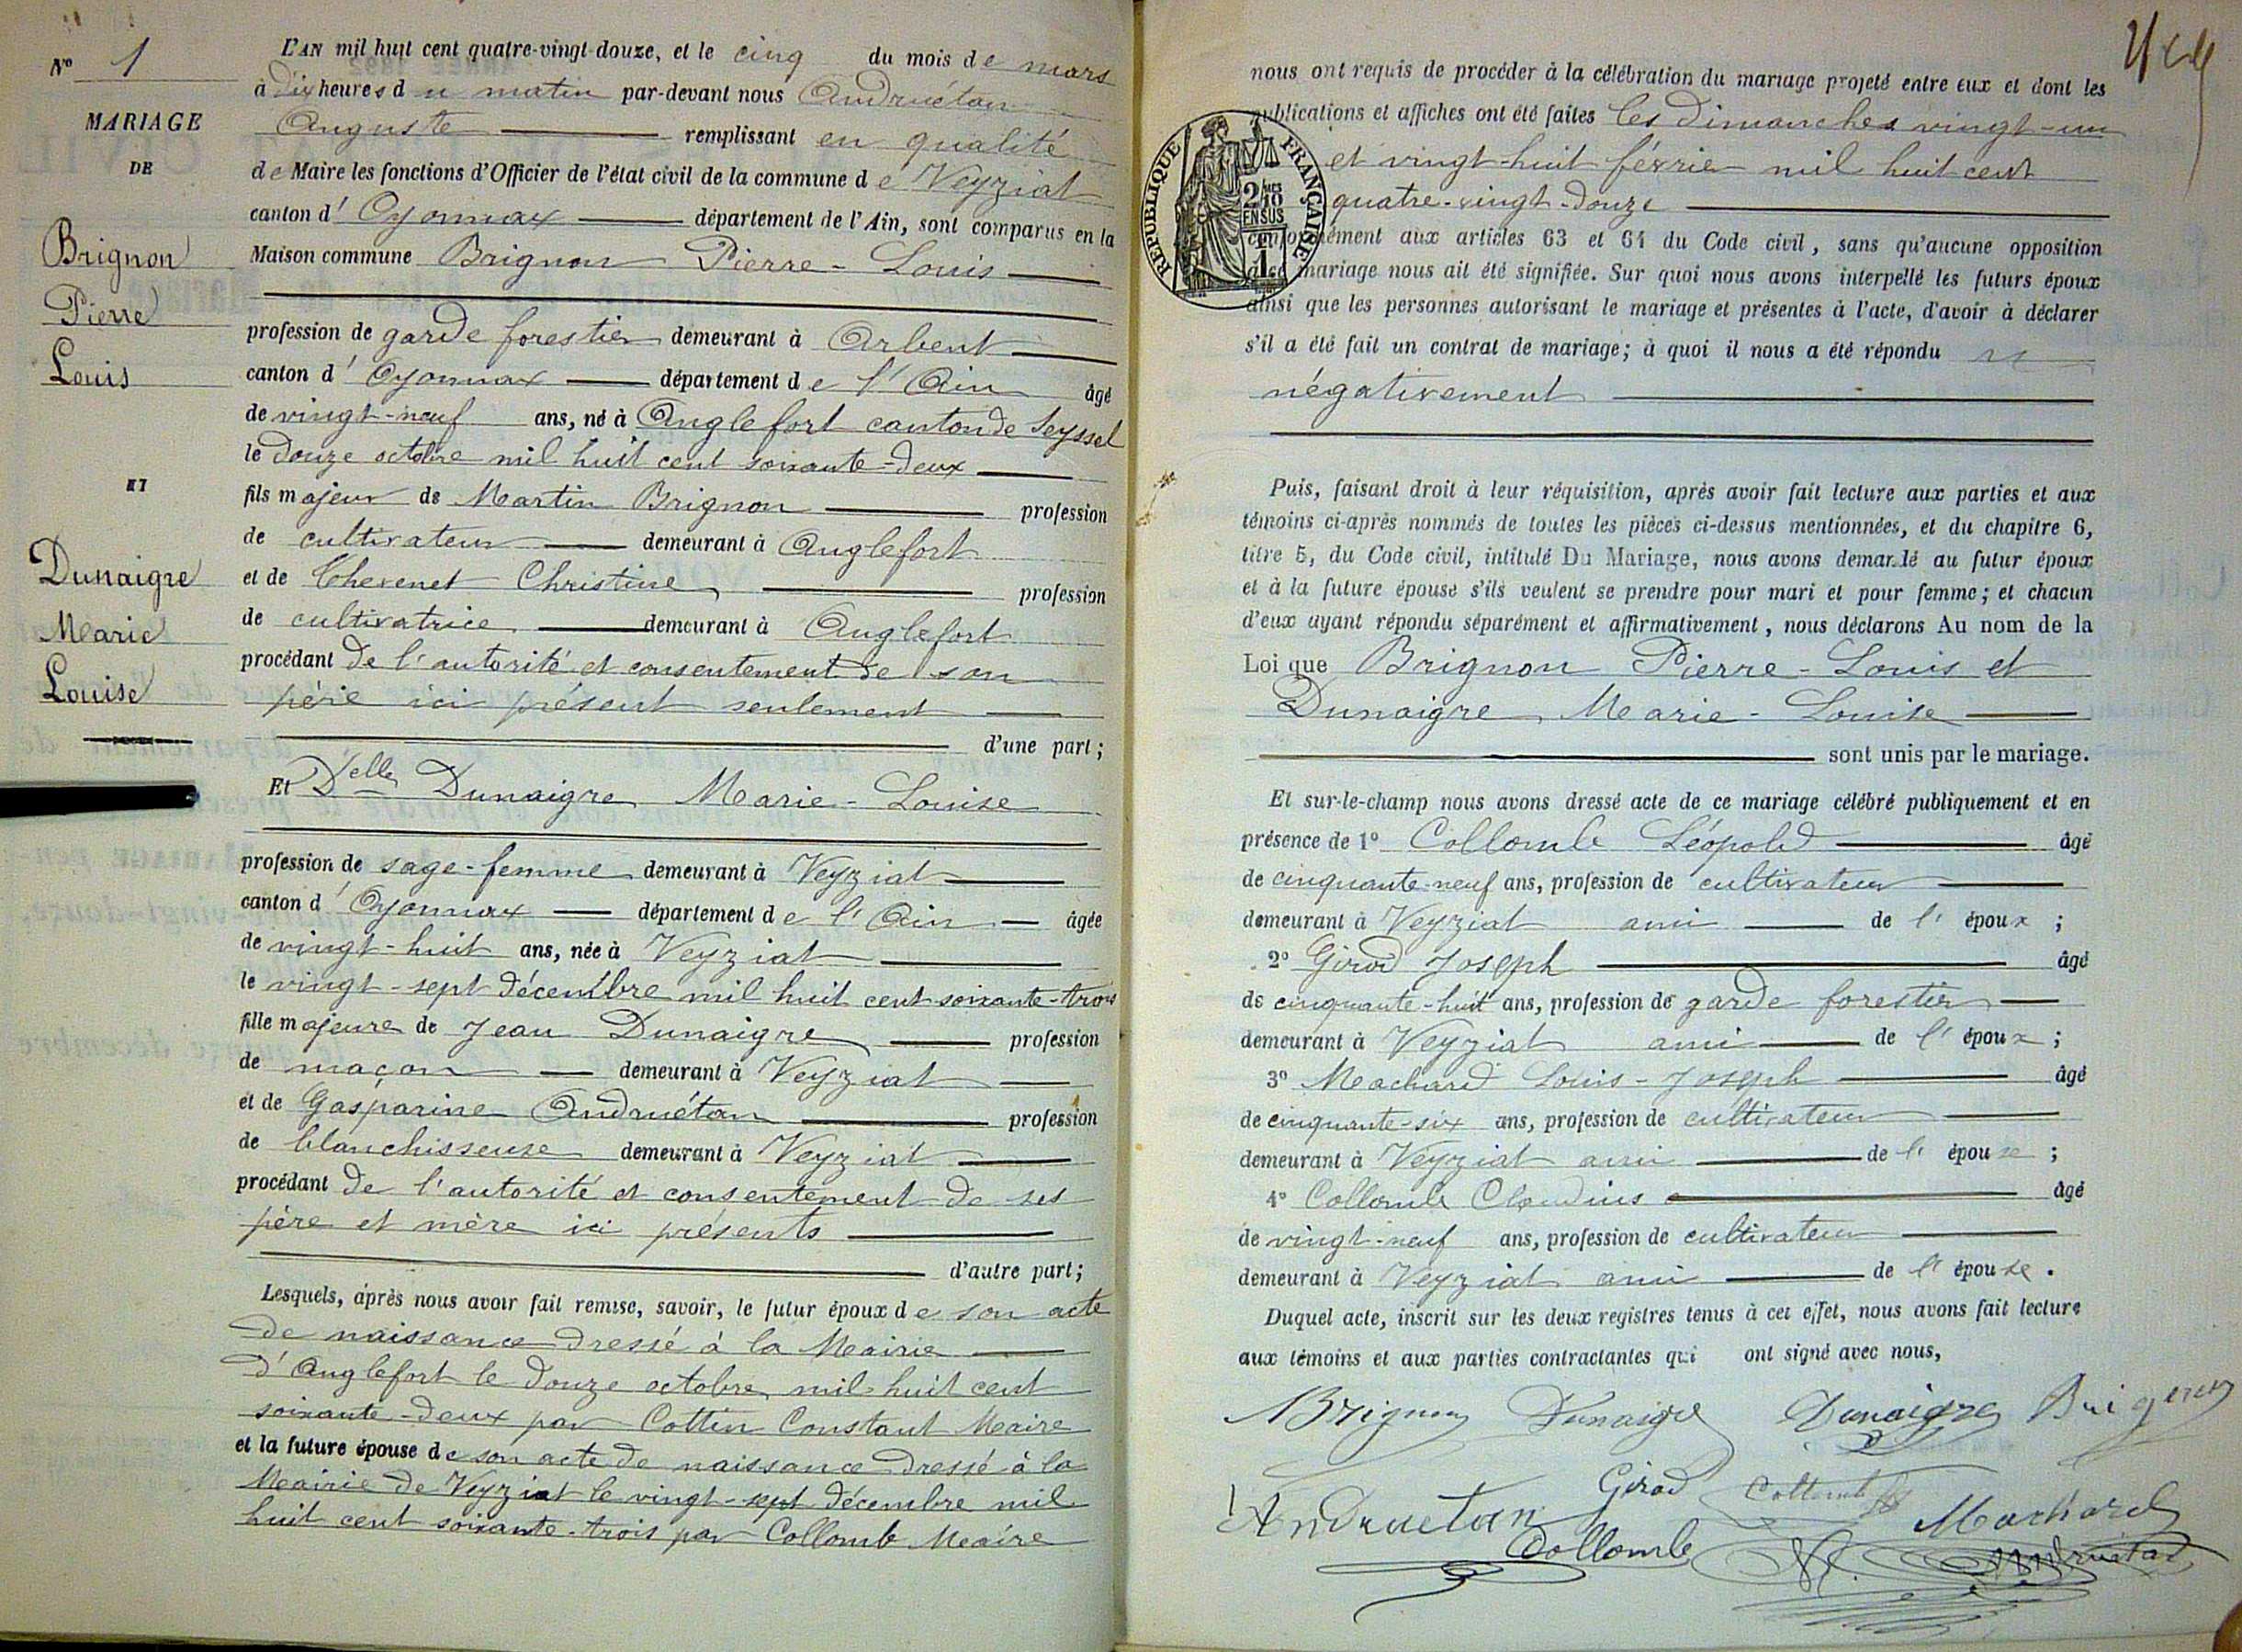 N° 1
MARIAGE
DE
Brignon
Pierre
Louis
ET
Dunaigre
Marie
Louise
L'AN mil huit cent quatre-vingt-douze, et le cinq du mois de mars
à dix heures du matin par-devant nous Andruétan
Auguste remplissant en qualité
de Maire les fonctions d'Officier de l'état civil de la commune de Veyziat
canton d'Oyonnax département de l'Ain, sont comparus en la
Maison commune Brignon Pierre-Louis
profession de garde forestier demeurant à Arbent
canton d'Oyonnax département de l'Ain âgé
de vingt-neuf ans, né à Anglefort canton de Seyssel
le douze octobre mil huit cent soixante-deux
fils majeur de Martin Brignon profession
de cultivateur demeurant à Anglefort
et de Chevenet Christine profession
de cultivatrice demeurant à Anglefort
procédant de l'autorité et consentement de son
père ici présent seulement
d'une part;
Et Delle Dunaigre Marie-Louise
profession de sage-femme demeurant à Veyziat
canton d'Oyonnax département de l'Ain âgée
de vingt-huit ans, née à Veyziat
le vingt-sept décembre mil huit cent soixante-trois
fille majeure de Jean Dunaigre profession
de maçon demeurant à Veyziat
et de Gasparine Andruétan profession
de blanchisseuse demeurant à Veyziat
procédant de l'autorité et consentement de ses
père et mère ici présents
d'autre part;
Lesquels, après nous avoir fait remise, savoir, le futur époux de son acte
de naissance dressé à la Mairie
d'Anglefort le douze octobre mil huit cent
soixante-deux par Cottin Constant Maire
et la future épouse de son acte de naissance dressé à la
Mairie de Veyziat le vingt-sept décembre mil
huit cent soixante-trois par Collomb Maire
nous ont requis de procéder à la célébration du mariage projeté entre eux et dont les
publications et affiches ont été faites les dimanches vingt-un
et vingt-huit février mil huit cent
quatre-vingt-douze
conformément aux articles 63 et 64 du Code civil, sans qu'aucune opposition
à ce mariage nous ait été signifiée. Sur quoi nous avons interpellé les futurs époux
ainsi que les personnes autorisant le mariage et présentes à l'acte, d'avoir à déclarer
s'il a été fait un contrat de mariage; à quoi il nous a été répondu
négativement
RÉPUBLIQUE FRANÇAISE
2/10
EN SUS
1F
Puis, faisant droit à leur réquisition, après avoir fait lecture aux parties et aux
témoins ci-après nommés de toutes les pièces ci-dessus mentionnées, et du chapitre 6,
titre 5, du Code civil, intitulé Du Mariage, nous avons demandé au futur époux
et à la future épouse s'ils veulent se prendre pour mari et pour femme; et chacun
d'eux ayant répondu séparément et affirmativement, nous déclarons Au nom de la
Loi que Brignon Pierre-Louis et
Dunaigre Marie-Louise
sont unis par le mariage.
Et sur-le-champ nous avons dressé acte de ce mariage célébré publiquement et en
présence de 1° Collomb Léopold âgé
de cinquante-neuf ans, profession de cultivateur
demeurant à Veyziat ami de l'époux;
2° Girod Joseph âgé
de cinquante-huit ans, profession de garde forestier
demeurant à Veyziat ami de l'époux;
3° Machard Louis-Joseph âgé
de cinquante-six ans, profession de cultivateur
demeurant à Veyziat ami de l'épouse;
4° Collomb Claudius âgé
de vingt-neuf ans, profession de cultivateur
demeurant à Veyziat ami de l'épouse.
Duquel acte, inscrit sur les deux registres tenus à cet effet, nous avons fait lecture
aux témoins et aux parties contractantes qui ont signé avec nous,
Brignon Dunaigre Dunaigre Brignon
Girod Collomb
Andruetan Machard
Collomb Andruétan